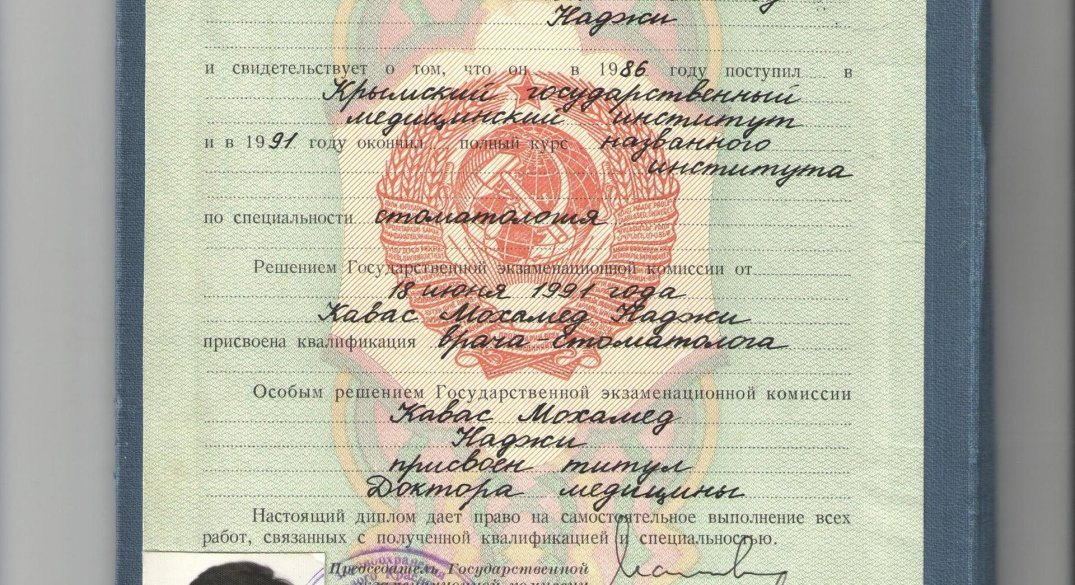 Наджи
и свидетельствует о том, что он в 1986 году поступил в
Крымский государственный
медицинский институт
и в 1991 году окончил полный курс названного
института
по специальности стоматология
Решением Государственной экзаменационной комиссии от
18 июня 1991 года
Кавас Мохамед Наджи
присвоена квалификация врача-стоматолога
Особым решением Государственной экзаменационной комиссии
Кавас Мохамед
Наджи
присвоен титул
Доктора медицины
Настоящий диплом дает право на самостоятельное выполнение всех
работ, связанных с полученной квалификацией и специальностью.
Председатель Государственной
экзаменационной комиссии